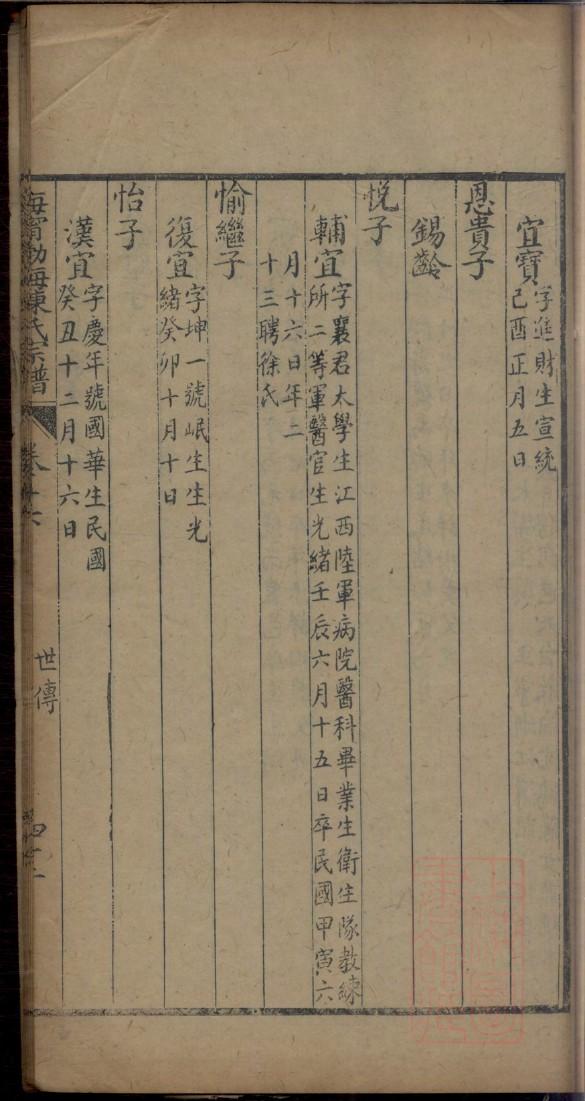 宜寶字進財生宣統
己酉正月五日
恩貴子
錫齡
悅子
輔宜字襄君太學生江西陸軍病院醫科畢業生衛生隊教練
所二等軍醫官生光緒壬辰六月十五日卒民國甲寅六
月十六日年二
十三聘徐氏
愉繼子
復宜字坤一號岷生生光
緒癸卯十月十日
怡子
漢宜字慶年號國華生民國
癸丑十二月十六日
海寧渤海陳氏宗譜
卷十六
世傳